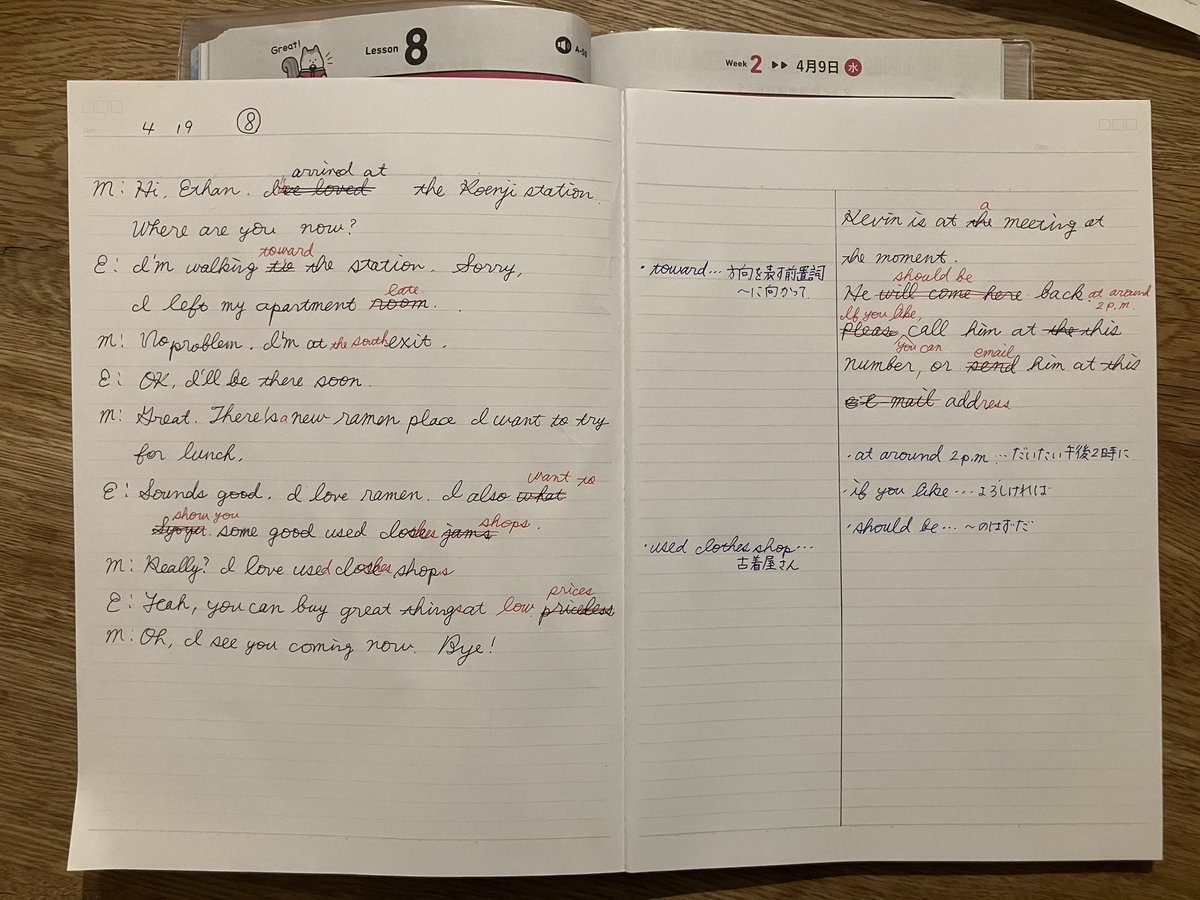 Great!
Lesson 8
A-50
Week 2 ▶▶ 4月9日 水
4 19 ⑧
arrived at
M: Hi, Ethan. I've loved the Koenji station.
Where are you now?
toward
E: I'm walking to the station. Sorry,
late
I left my apartment room.
M: No problem. I'm at the south exit.
E: OK, I'll be there soon.
M: Great. There's a new ramen place I want to try
for lunch.
want to
E: Sounds good. I love ramen. I also what
show you shops.
some good used clothes jams
M: Really? I love used clothes shops
prices
E: Yeah, you can buy great things at low priceless
M: Oh, I see you coming now. Bye!
・toward…方向を表す前置詞
～に向かって
・used clothes shop…
古着屋さん
a
Kevin is at the meeting at
the moment.
should be
He will come here back at around
2 p.m.
If you like,
Please call him at the this
you can email
number, or send him at this
e-mail address
・at around 2 p.m…だいたい午後2時に
・if you like…よろしければ
・should be…～のはずだ